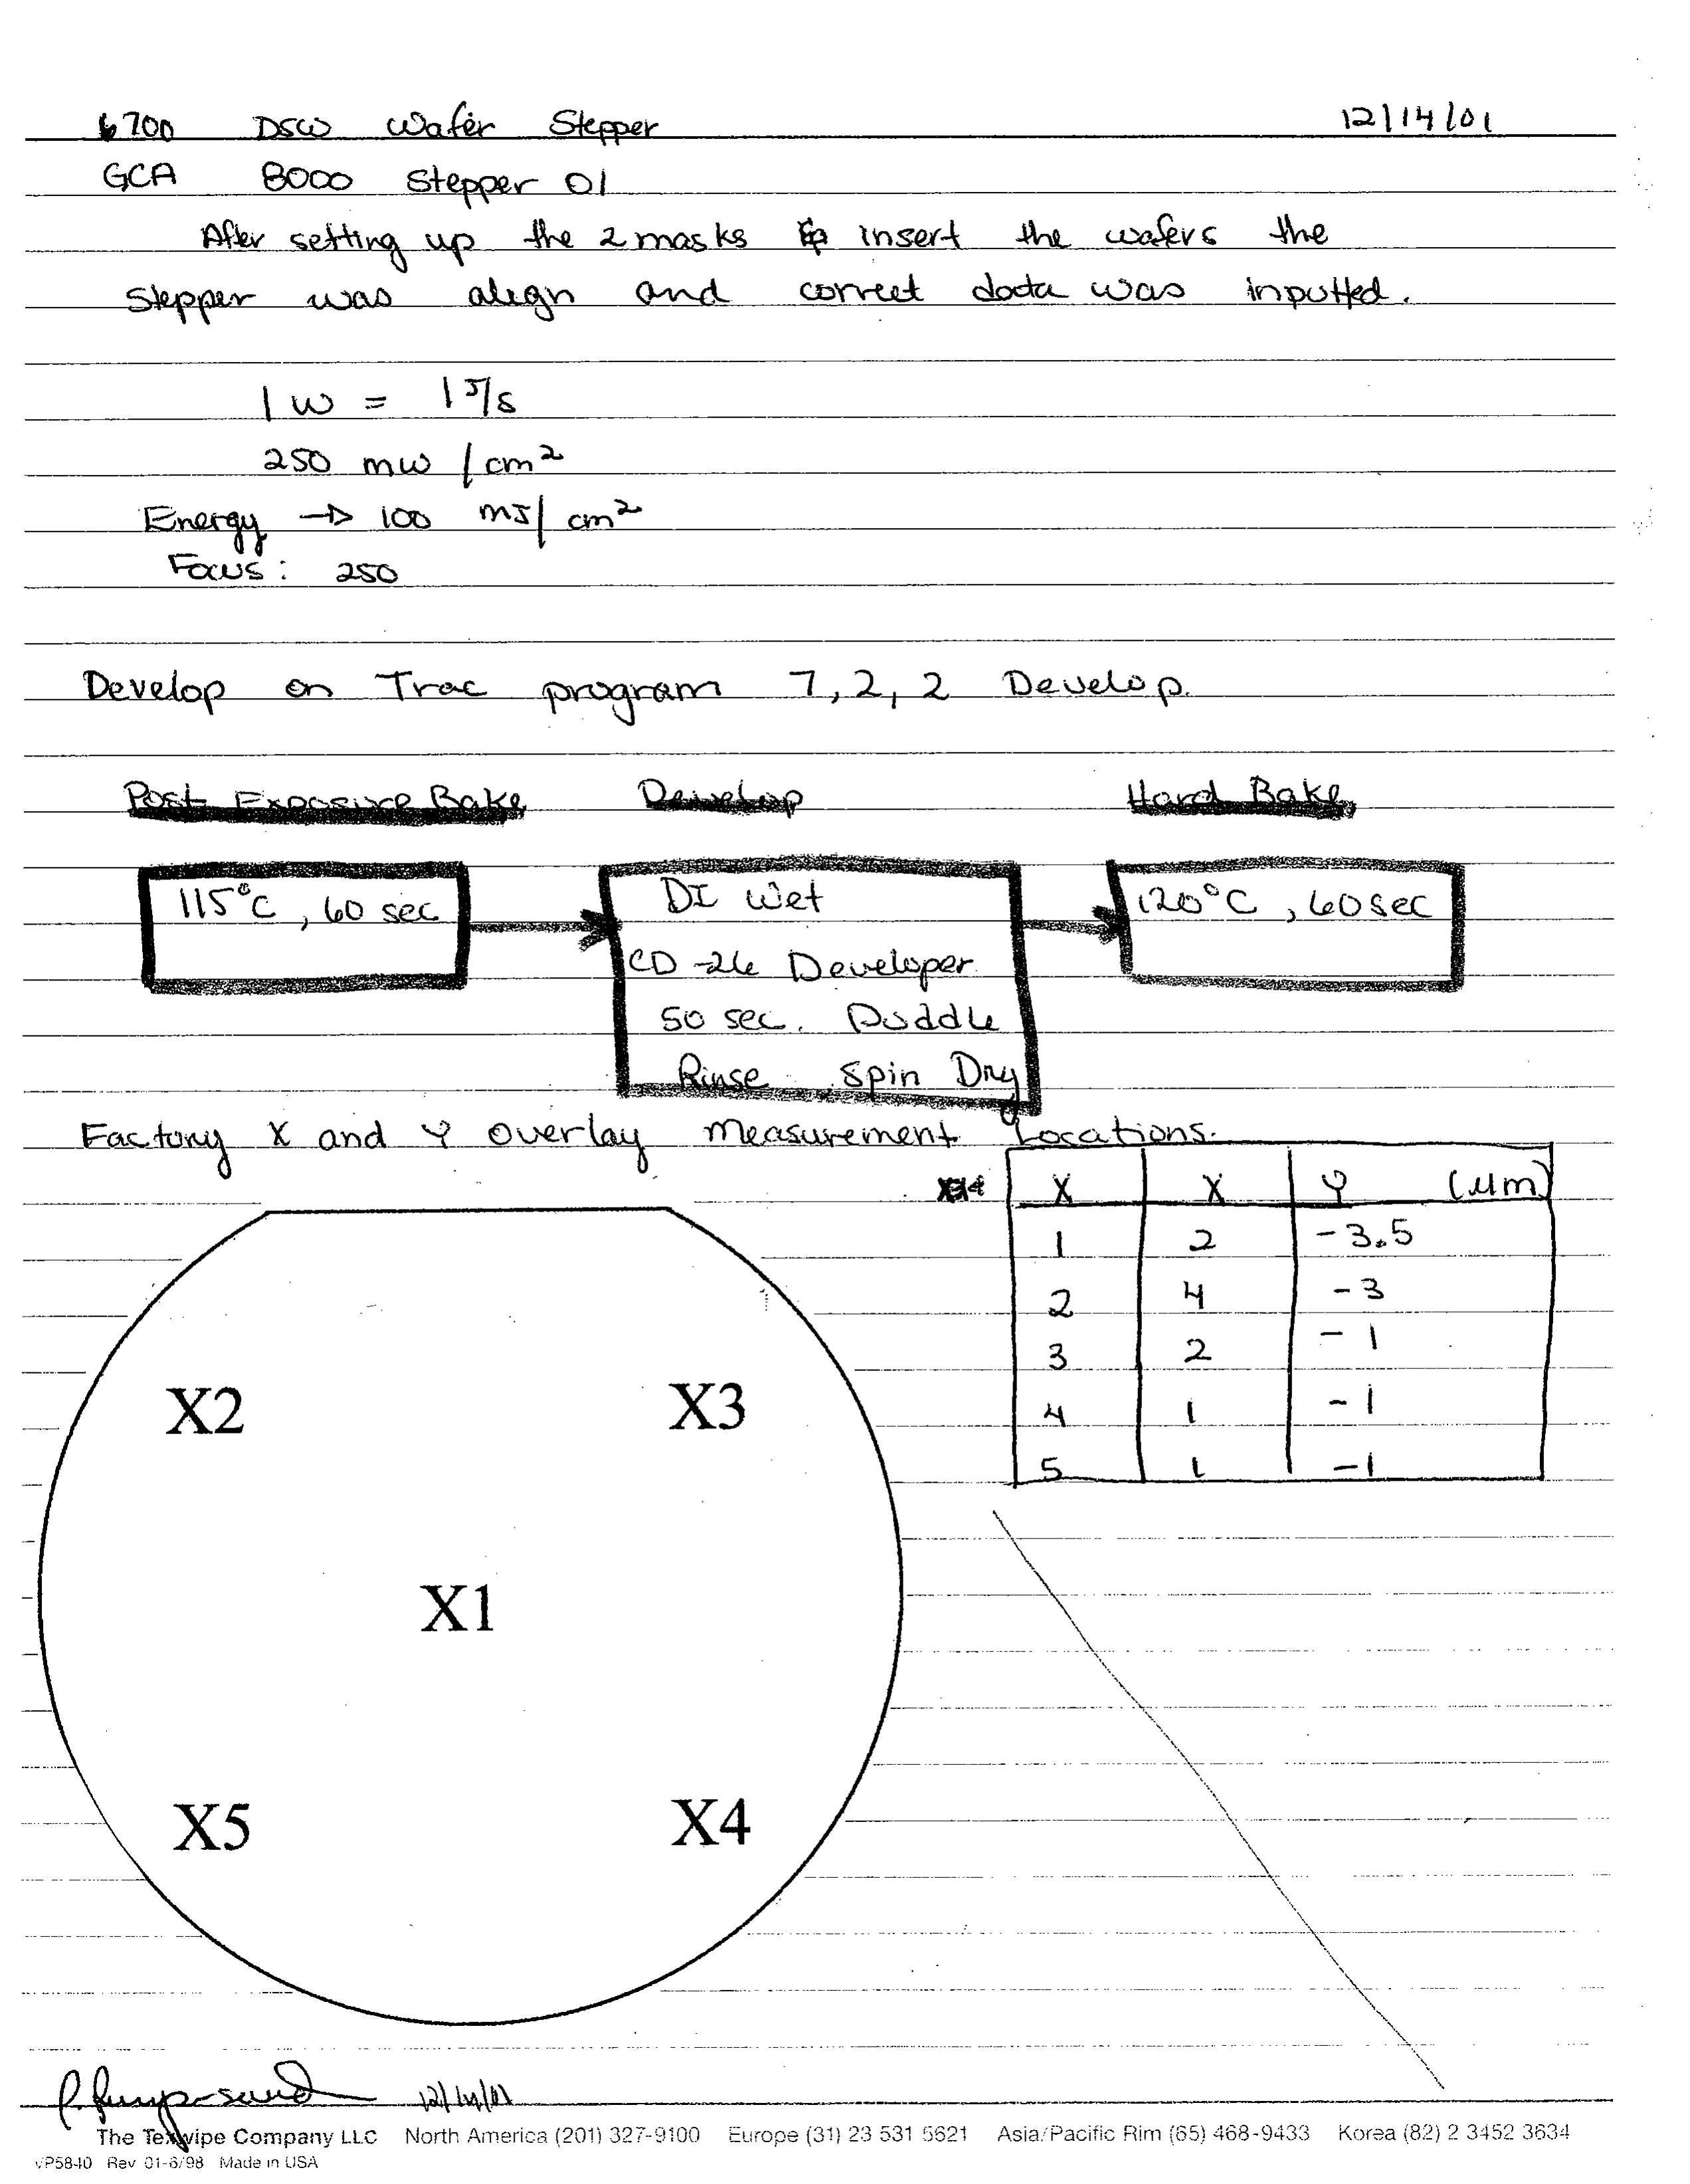 6700 DSW Wafer Stepper 12/14/01
GCA 8000 Stepper 01
After setting up the 2 masks & insert the wafers the
stepper was align and correct data was inputted.
1 w = 1 J/s
250 mw / cm²
Energy → 100 mJ/ cm²
Focus: 250
Develop on Trac program 7, 2, 2 Develop.
Post Exposure Bake Develop Hard Bake
115°C, 60 sec
DI Wet
CD-26 Developer
50 sec. Puddle
Rinse, Spin Dry
120°C, 60 sec
Factory X and Y overlay measurement Locations.
X X Y (µm)
1 2 -3.5
2 4 -3
3 2 -1
4 1 -1
5 1 -1
X2 X3
X1
X5 X4
12/14/01
The Texwipe Company LLC North America (201) 327-9100 Europe (31) 23 531 5621 Asia/Pacific Rim (65) 468-9433 Korea (82) 2 3452 3634
VP5840 Rev 01-6/98 Made in USA